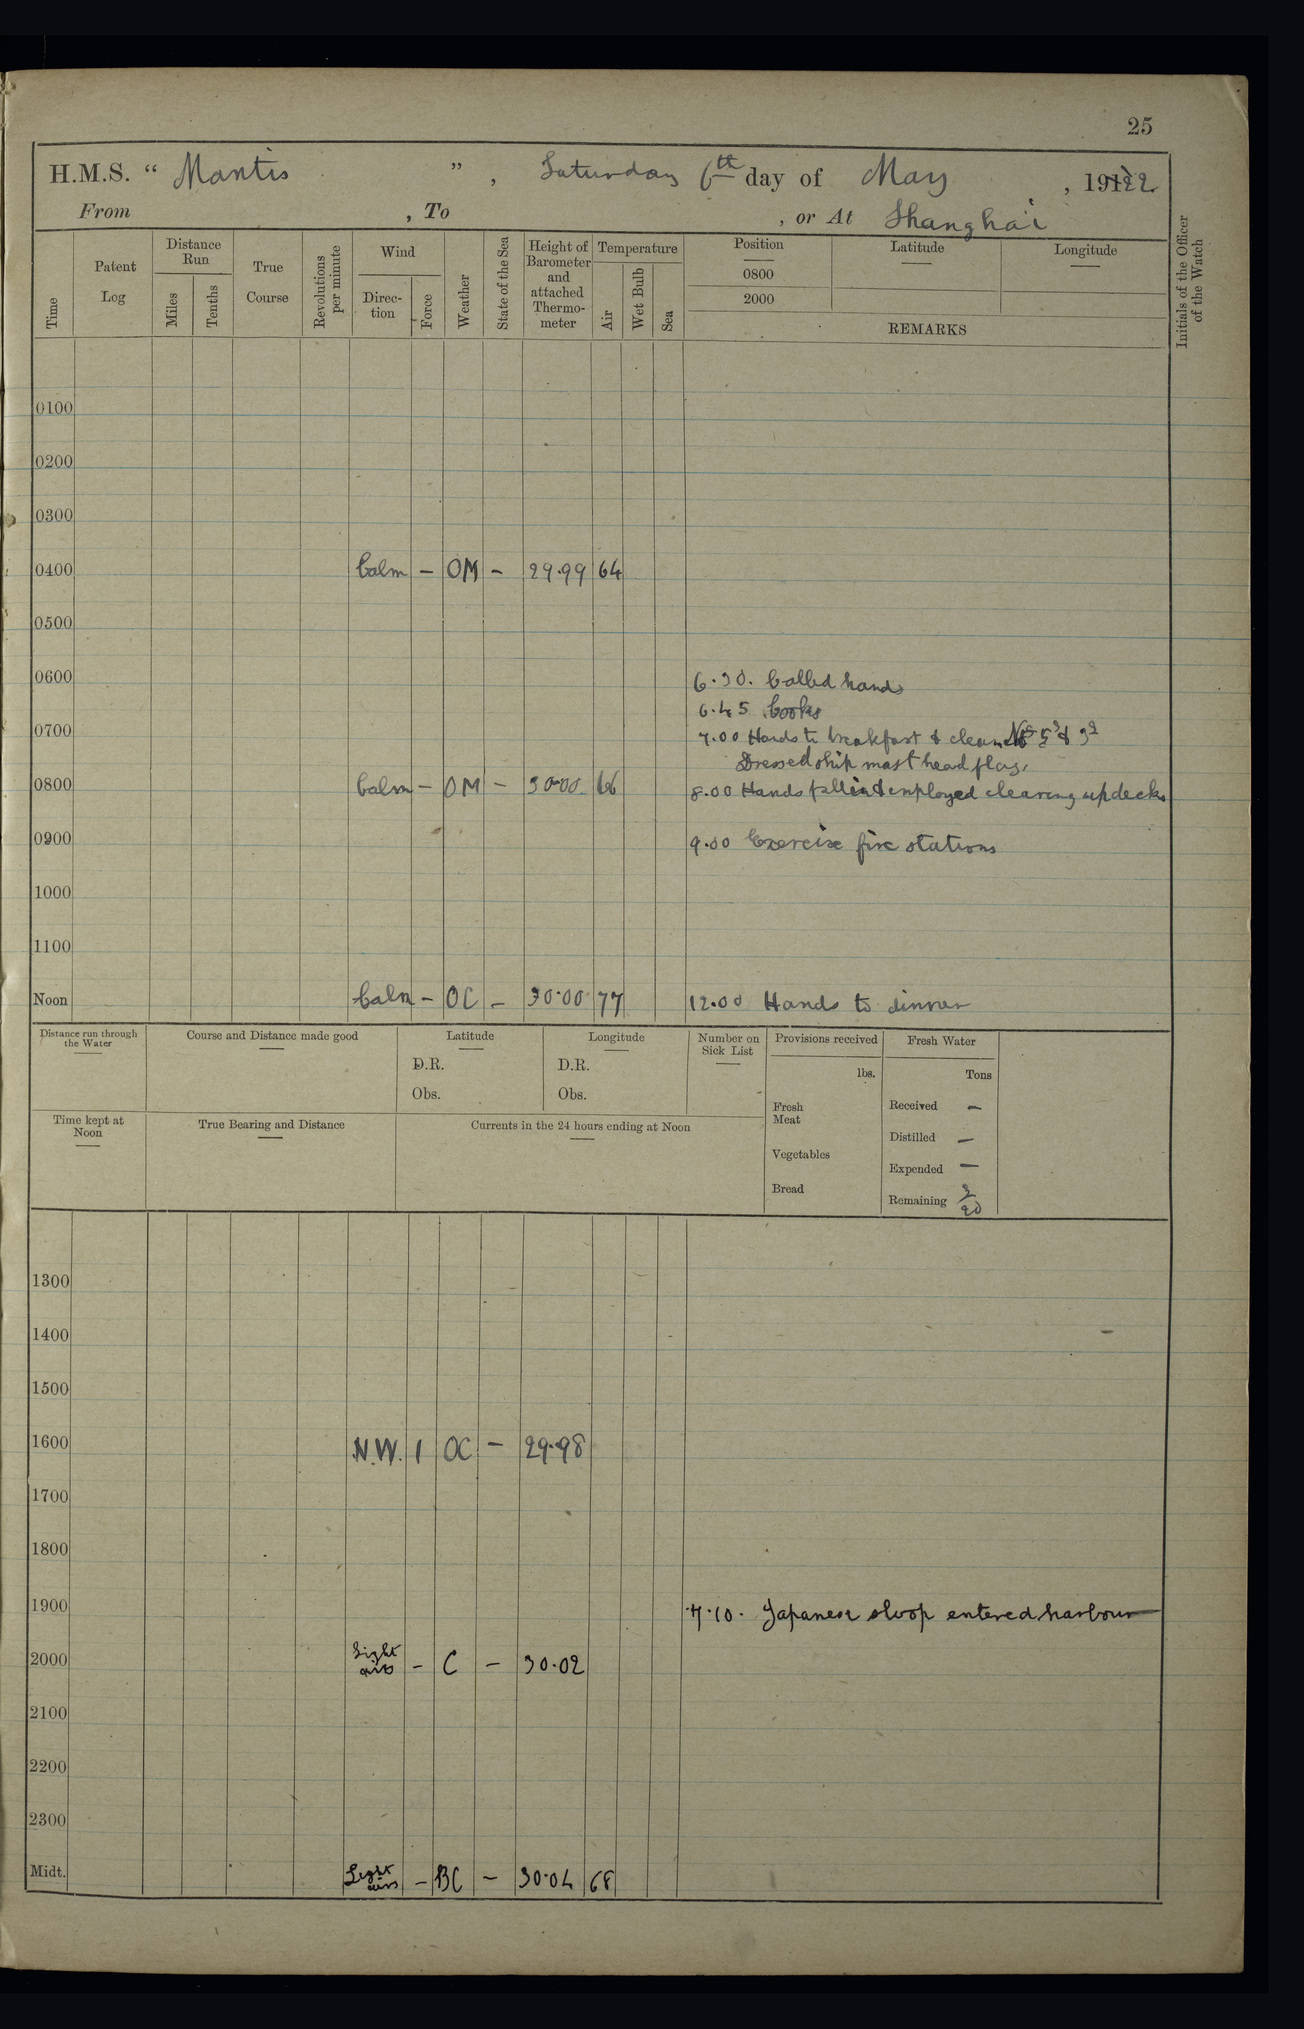 25
H.M.S. “ Mantis ” , Saturday 6th day of May , 1922
From , To , or At Shanghai
Time
Patent Log
Distance Run
Miles
Tenths
True Course
Revolutions per minute
Wind
Direc-tion
Force
Weather
State of the Sea
Height of Barometer and attached Thermo-meter
Temperature
Air
Wet Bulb
Sea
Position
0800
2000
Latitude
Longitude
REMARKS
Initials of the Officer of the Watch
0100
0200
0300
0400 Calm – OM – 29.99 64
0500
0600 6.30. Called hands
6.45 Cooks
0700 7.00 Hands to breakfast & clean No 5s & 3s
Dressed ship mast head flags.
0800 Calm – OM – 30.00 66 8.00 Hands fall in & employed clearing up decks
0900 9.00 Exercise fire stations
1000
1100
Noon Calm – OC – 30.00 77 12.00 Hands to dinner
Distance run through the Water
Course and Distance made good
Latitude
D.R.
Obs.
Longitude
D.R.
Obs.
Number on Sick List
Provisions received
lbs.
Fresh Meat
Vegetables
Bread
Fresh Water
Tons
Received –
Distilled –
Expended –
Remaining
Time kept at Noon
True Bearing and Distance
Currents in the 24 hours ending at Noon
1300
1400
1500
1600 N.W. 1 OC – 29.98
1700
1800
1900 7.10. Japanese sloop entered harbour
2000 Light airs – C – 30.02
2100
2200
2300
Midt. Light airs – BC – 30.04 68